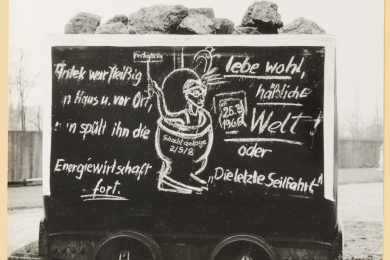 Antek war fleißig
in Haus u. vor Ort,
in spült ihn die
Energiewirtschaft
fort.
Schachtanlage
2/5/8
25.3
1966
lebe wohl,
häßliche
Welt!
oder
"Die letzte Seilfahrt"